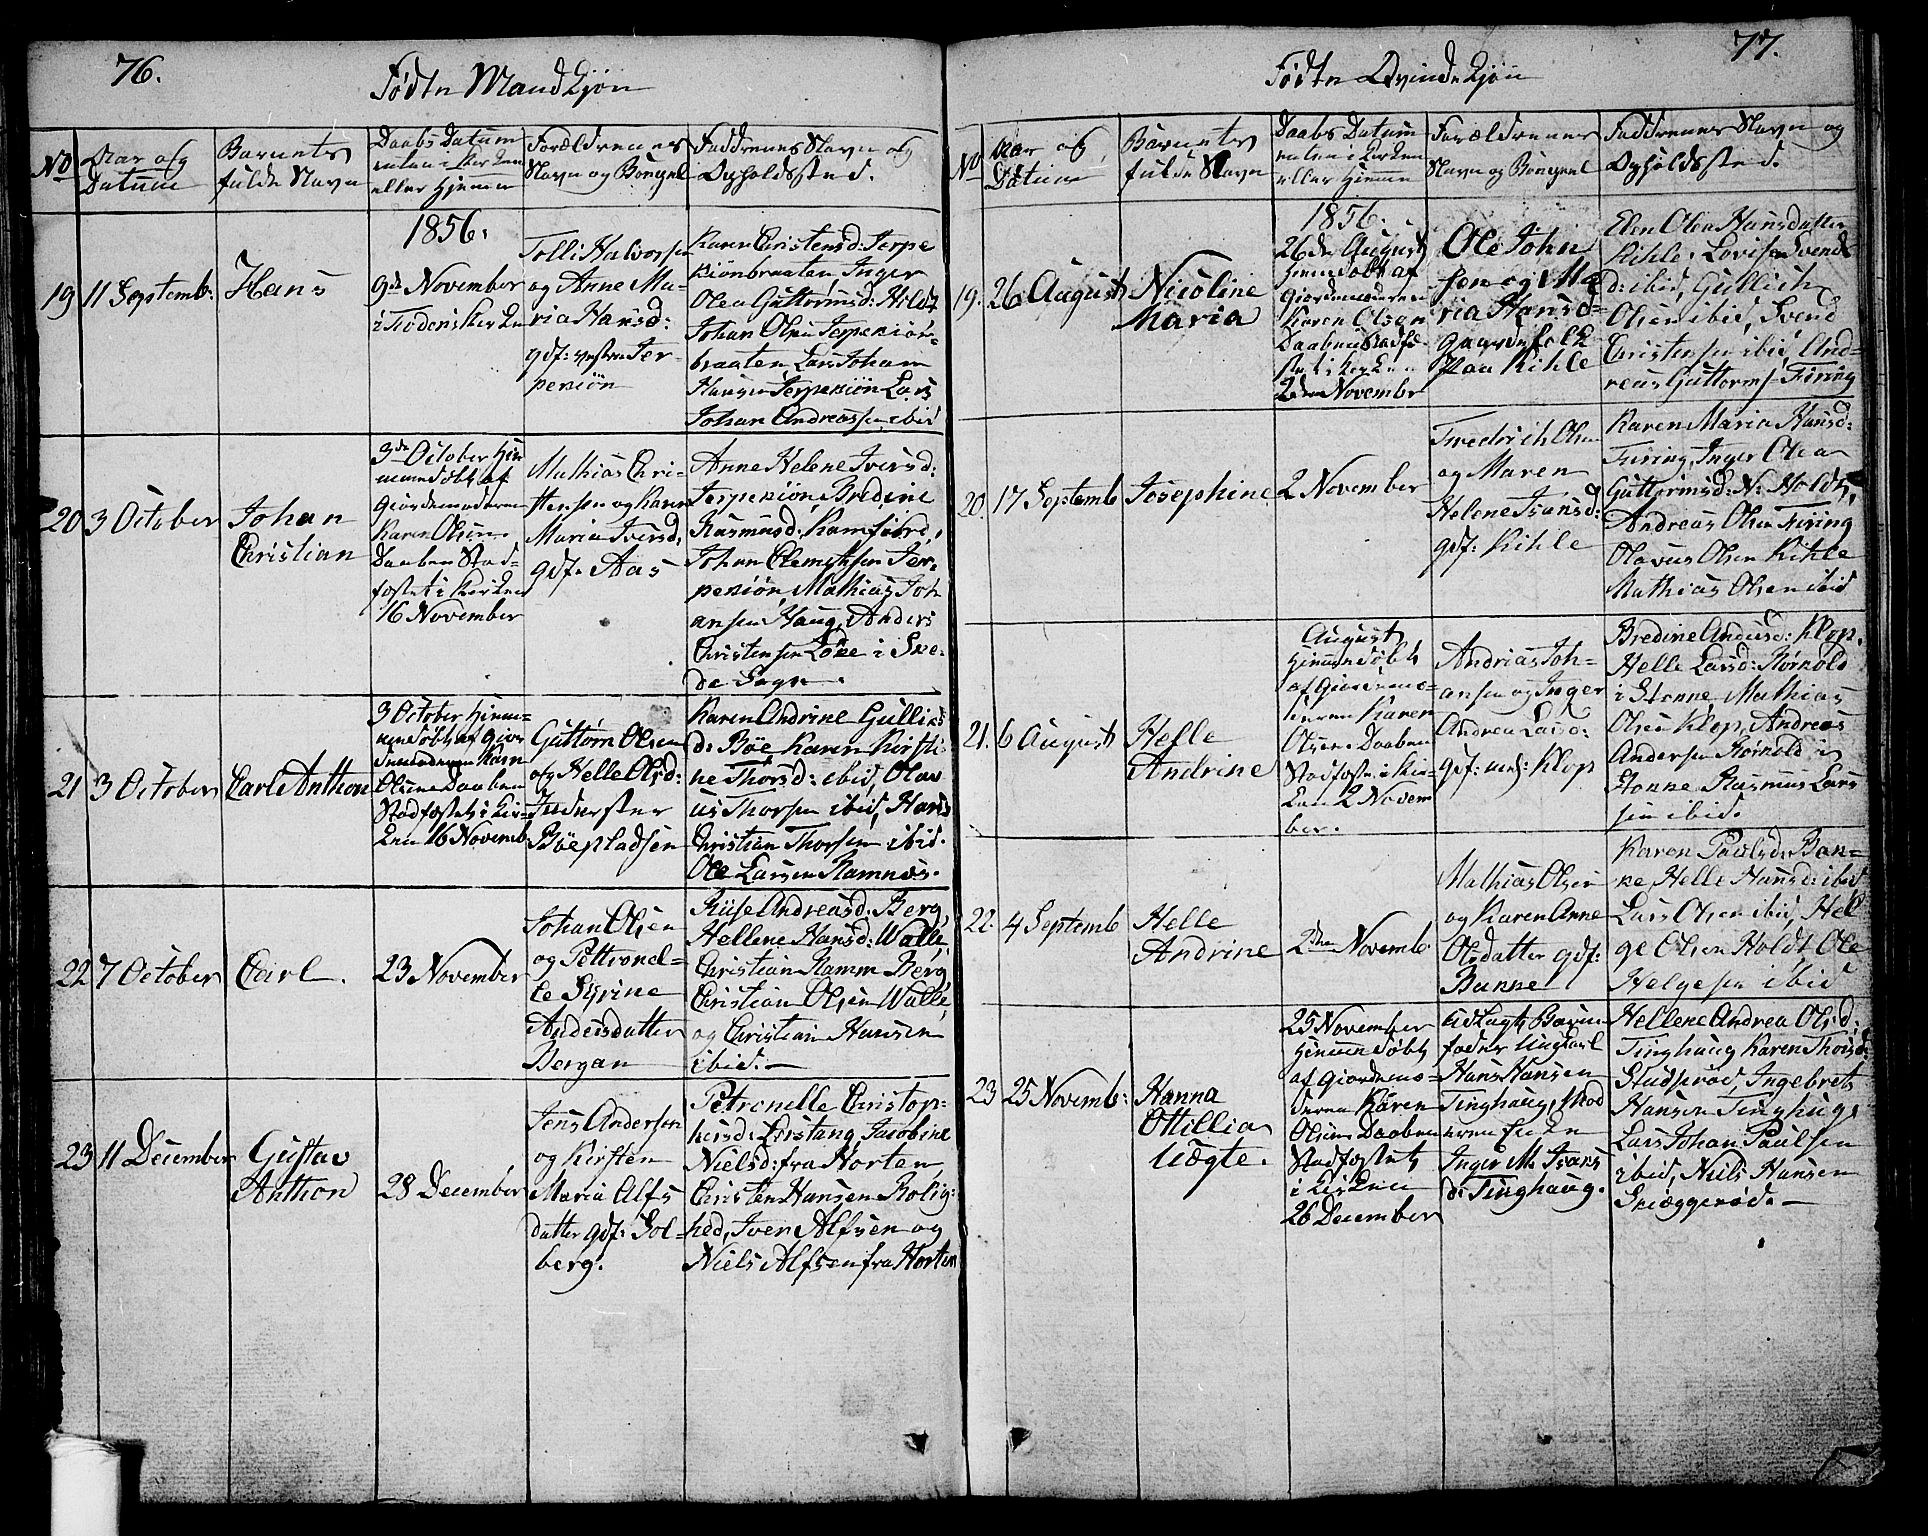 76.
Födte Mandkjön
No
Aar og
Datum
Barnets
fulde Navn
Daabs Datum
enten i Kirken
eller Hjemme
Forældrenes
Navn og Borgerl
Faddrenes Navn og
Opholdssted.
19
11 Septemb:
Hans
1856.
9de November
i Kirken
Tolli Halvorsen
og Anne Ma-
ria Hansd:
gdf: vestre Ter-
pekiön
Karen Christensd: Terpe
kiönbraaten, Inger
Olea Guttormsd: Holdt
Johan Olsen Terpekiön-
braaten, Lars Johan
Hansen Terpekiön Lars
Johan Andreassen ibid
20
3 October
Johan
Christian
3de October Hie-
mmedöbt af
Giordemoderen
Karen Olsen.
Daaben Stad-
fæstet i Kirken
16 November
Mathias Chri-
stensen og Karen
Maria Iversd.
gdf. Aas
Anne Helene Iversd:
Terpekiön, Bredine
Rasmusd: Ramfiord,
Johan Clemetsen Ter-
pekiön, Mathias Joh
ansen Haug, Anders
Christensen Löke i Ske-
de Sogn.
21
3 October
Carl Anthon
3 October Hiem-
medöbt af Gior
demoderen Karn
Olsen Daaben
Stadfæstet i Kir-
ken 16 Novemb.
Guttorm Olsen
og Helle Olsd:
Inderster
Böepladsen
Karen Andrine Gullics
d: Böe Karen Kirsti-
ne Thorsd: ibid, Olav
us Thorsen ibid, Hans
Christian Thorsen ibid.
Ole Larsen Ramnes.
22
7 October
Carl.
23 November
Johan Olsen
og Pettronel-
le Syrine
Andersdatter
Bergan
Andreasd: Berg,
Hellene Hansd: Walle,
Christian Ramm Berg
Christian Olsen Walle,
og Christian Hansen
ibid.
23
11 December
Gustav
Anthon
28 December
Jens Anderson
og Kirsten
Maria Alfs
datter gdf: Sol-
berg.
Petronelle Christop-
hersd: Lövstang, Jacobine
Nielsd: fra Horten,
Christen Hansen Rolig-
hed, Iver Alfsen og
Niels Alfsen fra Horten
77.
Födte Qvindekjön
No
Aar og
Datum
Barnets
fulde Navn
Daabs Datum
enten i Kirken
eller Hjemme
Forældrenes
Navn og Borgerl
Faddrenes Navn og
Opholdssted.
19.
26 August
Nicoline
Maria
1856.
26de August
Hiemmedöbt af
Giordemoderen
Karen Olsen
Daaben Stadfæ-
stet i Kirken
2den Novembr
Ole John
sen og Ma
ria Hansd-
Gaardefolk
paa Kihle
Elen Olea Hansdatter
Kihle, Lovise Svends
d: ibid, Gullich
Olsen ibid, Svend
Christensen ibid, And-
reas Guttorms. Firing
20.
17 Septemb
Josephine
2 November
Fredrich Olsen
og Maren
Helene Isansd:
gdf: Kihle
Karen Maria Hansd:
Firing, Inger Olea
Guttormsd: N: Holdt,
Andreas Olsen Firing
Olavus Olsen Kihle
Mathias Olsen ibid
21.
6 August
Helle
Andrine
August
Hiemmedöbt
af Giordemo-
deren Karen
Olsen. Daaben
Stadfæstet i Kir-
ken 2 Novem
ber.
Andrias Joh-
ansen og Inger
Andrea Larsd:
gdf: Klop
Bredine Andersd: Klop,
Helle Larsd: Körnold
i Stenne, Mathias
Olsen Klop, Andreas
Andersen Körnold i
Stenne Rasmus Lars
sen ibid.
22.
4 Septemb
Helle
Andrine
2den Novemb.
Mathias Olsen
og Karen Anne
Olsdatter gdf:
Banne
Karen Paulsd: Ban-
ne, Helle Hansd: ibid
Lars Olsen ibid, Hel-
ge Olsen Holdt, Ole
Helgesen ibid
23
25 Novemb:
Hanna
Ottillia
Uægte.
25 November
Hiemmedöbt
af Giordemo-
deren Karen
Olsen Daaben
Stadfæstet
i Kirken
26 December
Udlagt Barne
fader Ungkarl
Hans Hansen
Tinghaug, Mod
eren Enken
Inger M. Isans
d: Tinghaug.
Hellene Andrea Olsd:
Tinghaug Karen Thorsd:
Studsröd, Ingebret
Hansen Tinghaug,
Lars Johan Paulsen
ibid, Niels Hansen
Skieggeröd.